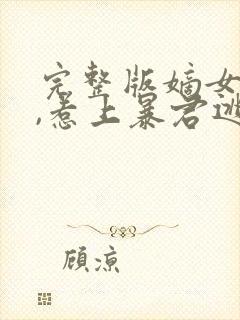 完整版嫡女
,惹上暴君逃
顾凉